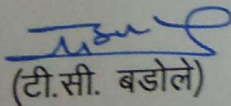 (टी.सी. बडोले)